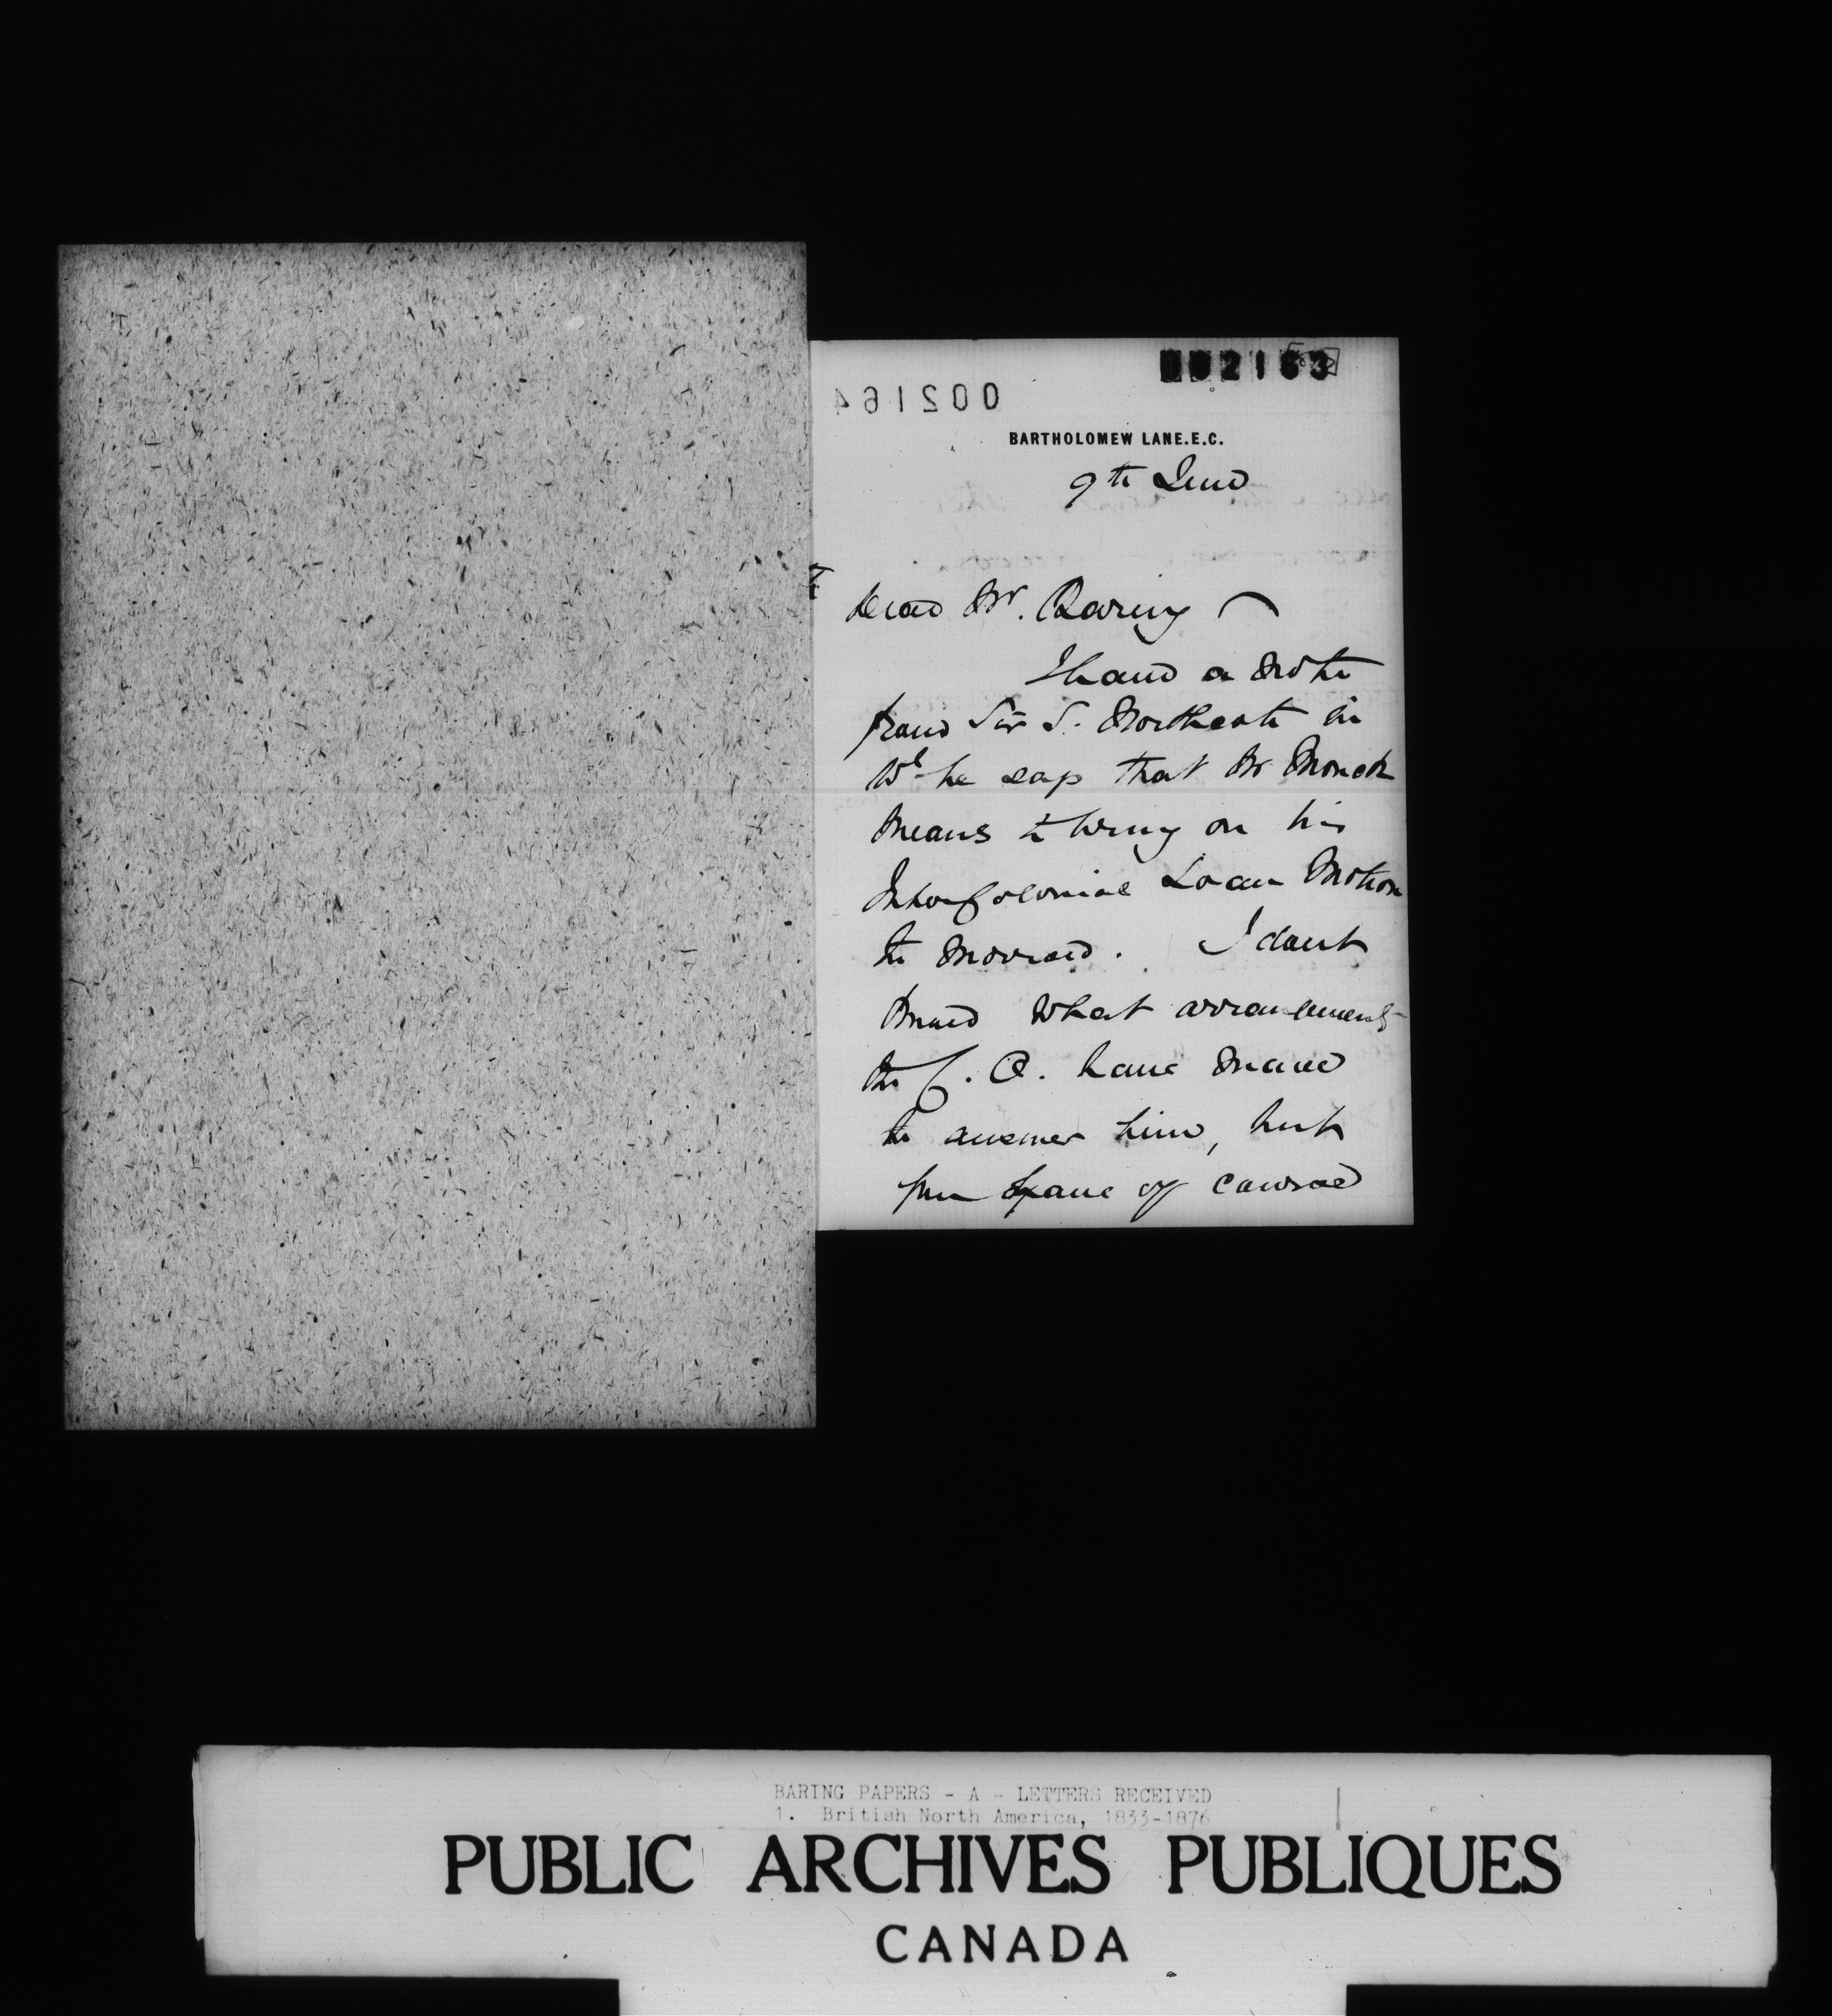 002163
002164
BARTHOLOMEW LANE.E.C.
9th June
Dear Mr. Baring
I have a note
from Sir S. Northcote in
wh he says that Mr Monck
means to bring on his
InterColonial Loan Motion
to morrow. I dont
know what arrangements
the C. O. have made
to answer him, but
you have of course
BARING PAPERS - A - LETTERS RECEIVED
1. British North America, 1833-1876
PUBLIC ARCHIVES PUBLIQUES
CANADA